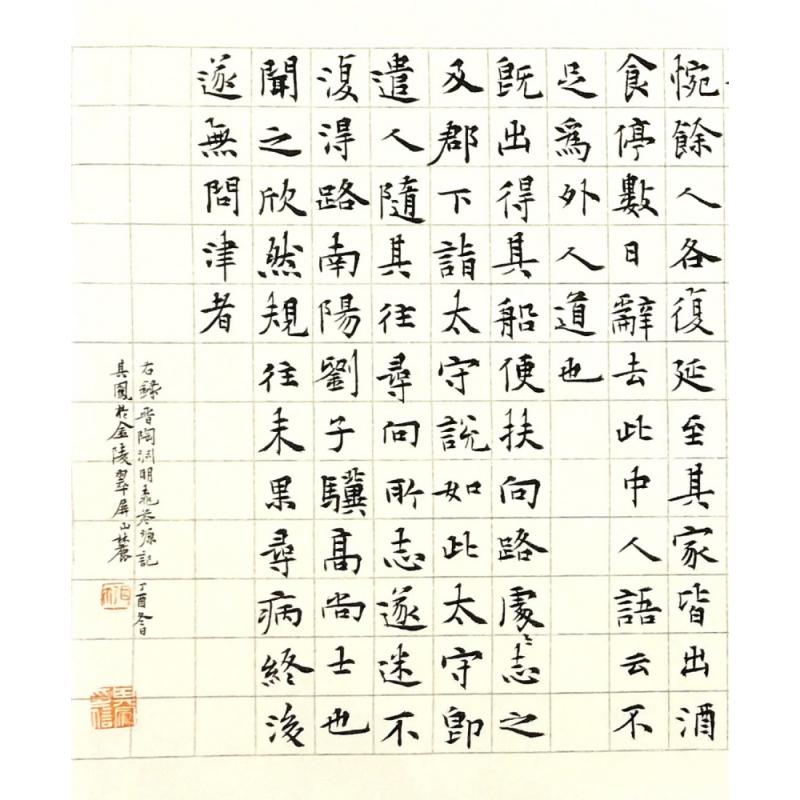 惋餘人各復延至其家皆出酒
食停數日辭去此中人語云不
足爲外人道也
旣出得其船便扶向路處〻志之
及郡下詣太守說如此太守卽
遣人隨其往尋向所志遂迷不
復得路南陽劉子驥高尚士也
聞之欣然規往未果尋病終後
遂無問津者
右錄晉陶渕明桃花源記 丁酉冬日
其國於金陵翠屏山麓